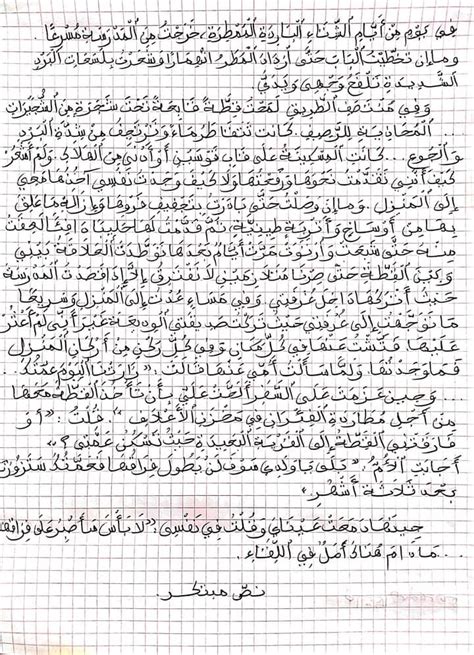 في يوم من أيام الشتاء الباردة الممطرة، خرجت من المدرسة مسرعا.
وما إن تخطيت الباب حتى ازداد المطر انهمارا وشعرت بلسعات البرد
الشديدة تلفح وجهي ويدي.
وفي منتصف الطريق لمحت قطة قابعة تحت شجرة من الشجيرات
المحاذية للرصيف. كانت تنتفض وترتجف من شدة البرد
والجوع... كانت المسكينة على قاب قوسين أو أدنى من الهلاك. ولم أشعر
كيف أنني تقدمت نحوها ورفعتها ولا كيف وجدت نفسي آخذها معي
إلى المنزل. وما إن وصلت حتى بادرت بتجفيف فروها وإزالة ما علق
بها من أوساخ وأتربة طينية، ثم قدمت لها حليبا دافئا لعقت
منه حتى شبعت وارتوت. مرت أيام بعدها توطدت العلاقة بيني
وبين القطة حتى صرنا متلازمين لا نفترق إلا إذا قصدت المدرسة
حيث أتركها داخل غرفتي. وفي مساء عدت إلى المنزل وسريعا
ما توجهت إلى غرفتي حيث تركت صديقتي الوديعة غير أني لم أعثر
عليها. فتشت عنها في كل مكان وفي كل ركن من أركان المنزل
فما وجدتها ولما سألت أمي عنها قالت: «زارتنا اليوم عمتك...
وحين عزمت على السفر ألحت علي بأن تأخذ القطة معها
من أجل مطاردة الفئران في مخزن الأعلاف». قلت: «أو
فارقتني القطة إلى القرية البعيدة حيث تسكن عمتي؟»
أجابت الأم: «بلى يا ولدي سوف لن يطول فراقها فعمتك ستزورنا
بعد ثلاثة أشهر.»
حينها دمعت عيناي وقلت في نفسي: «لا بأس سأصبر على فراقها
... ما دام هناك أمل في اللقاء...
نص مبتكر.